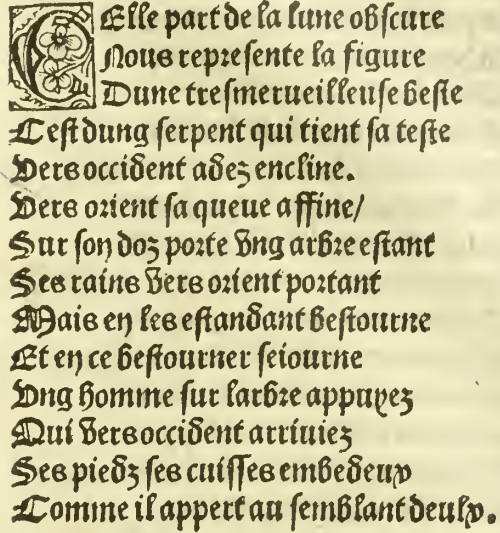 CElle part de la lune obscure
Nous represente la figure
Dune tresmerueilleuse beste
Cest dung serpent qui tient sa teste
Vers occident adez encline.
Vers orient sa queue affine/
Sur son doz porte vng arbre estant
Ses rains vers orient portant
Mais en les estandant bestourne
Et en ce bestourner seiourne
Vng homme sur larbre appuyez
Qui vers occident arriuiez
Ses piedz ses cuisses embedeux
Comme il appert au semblant deulx.